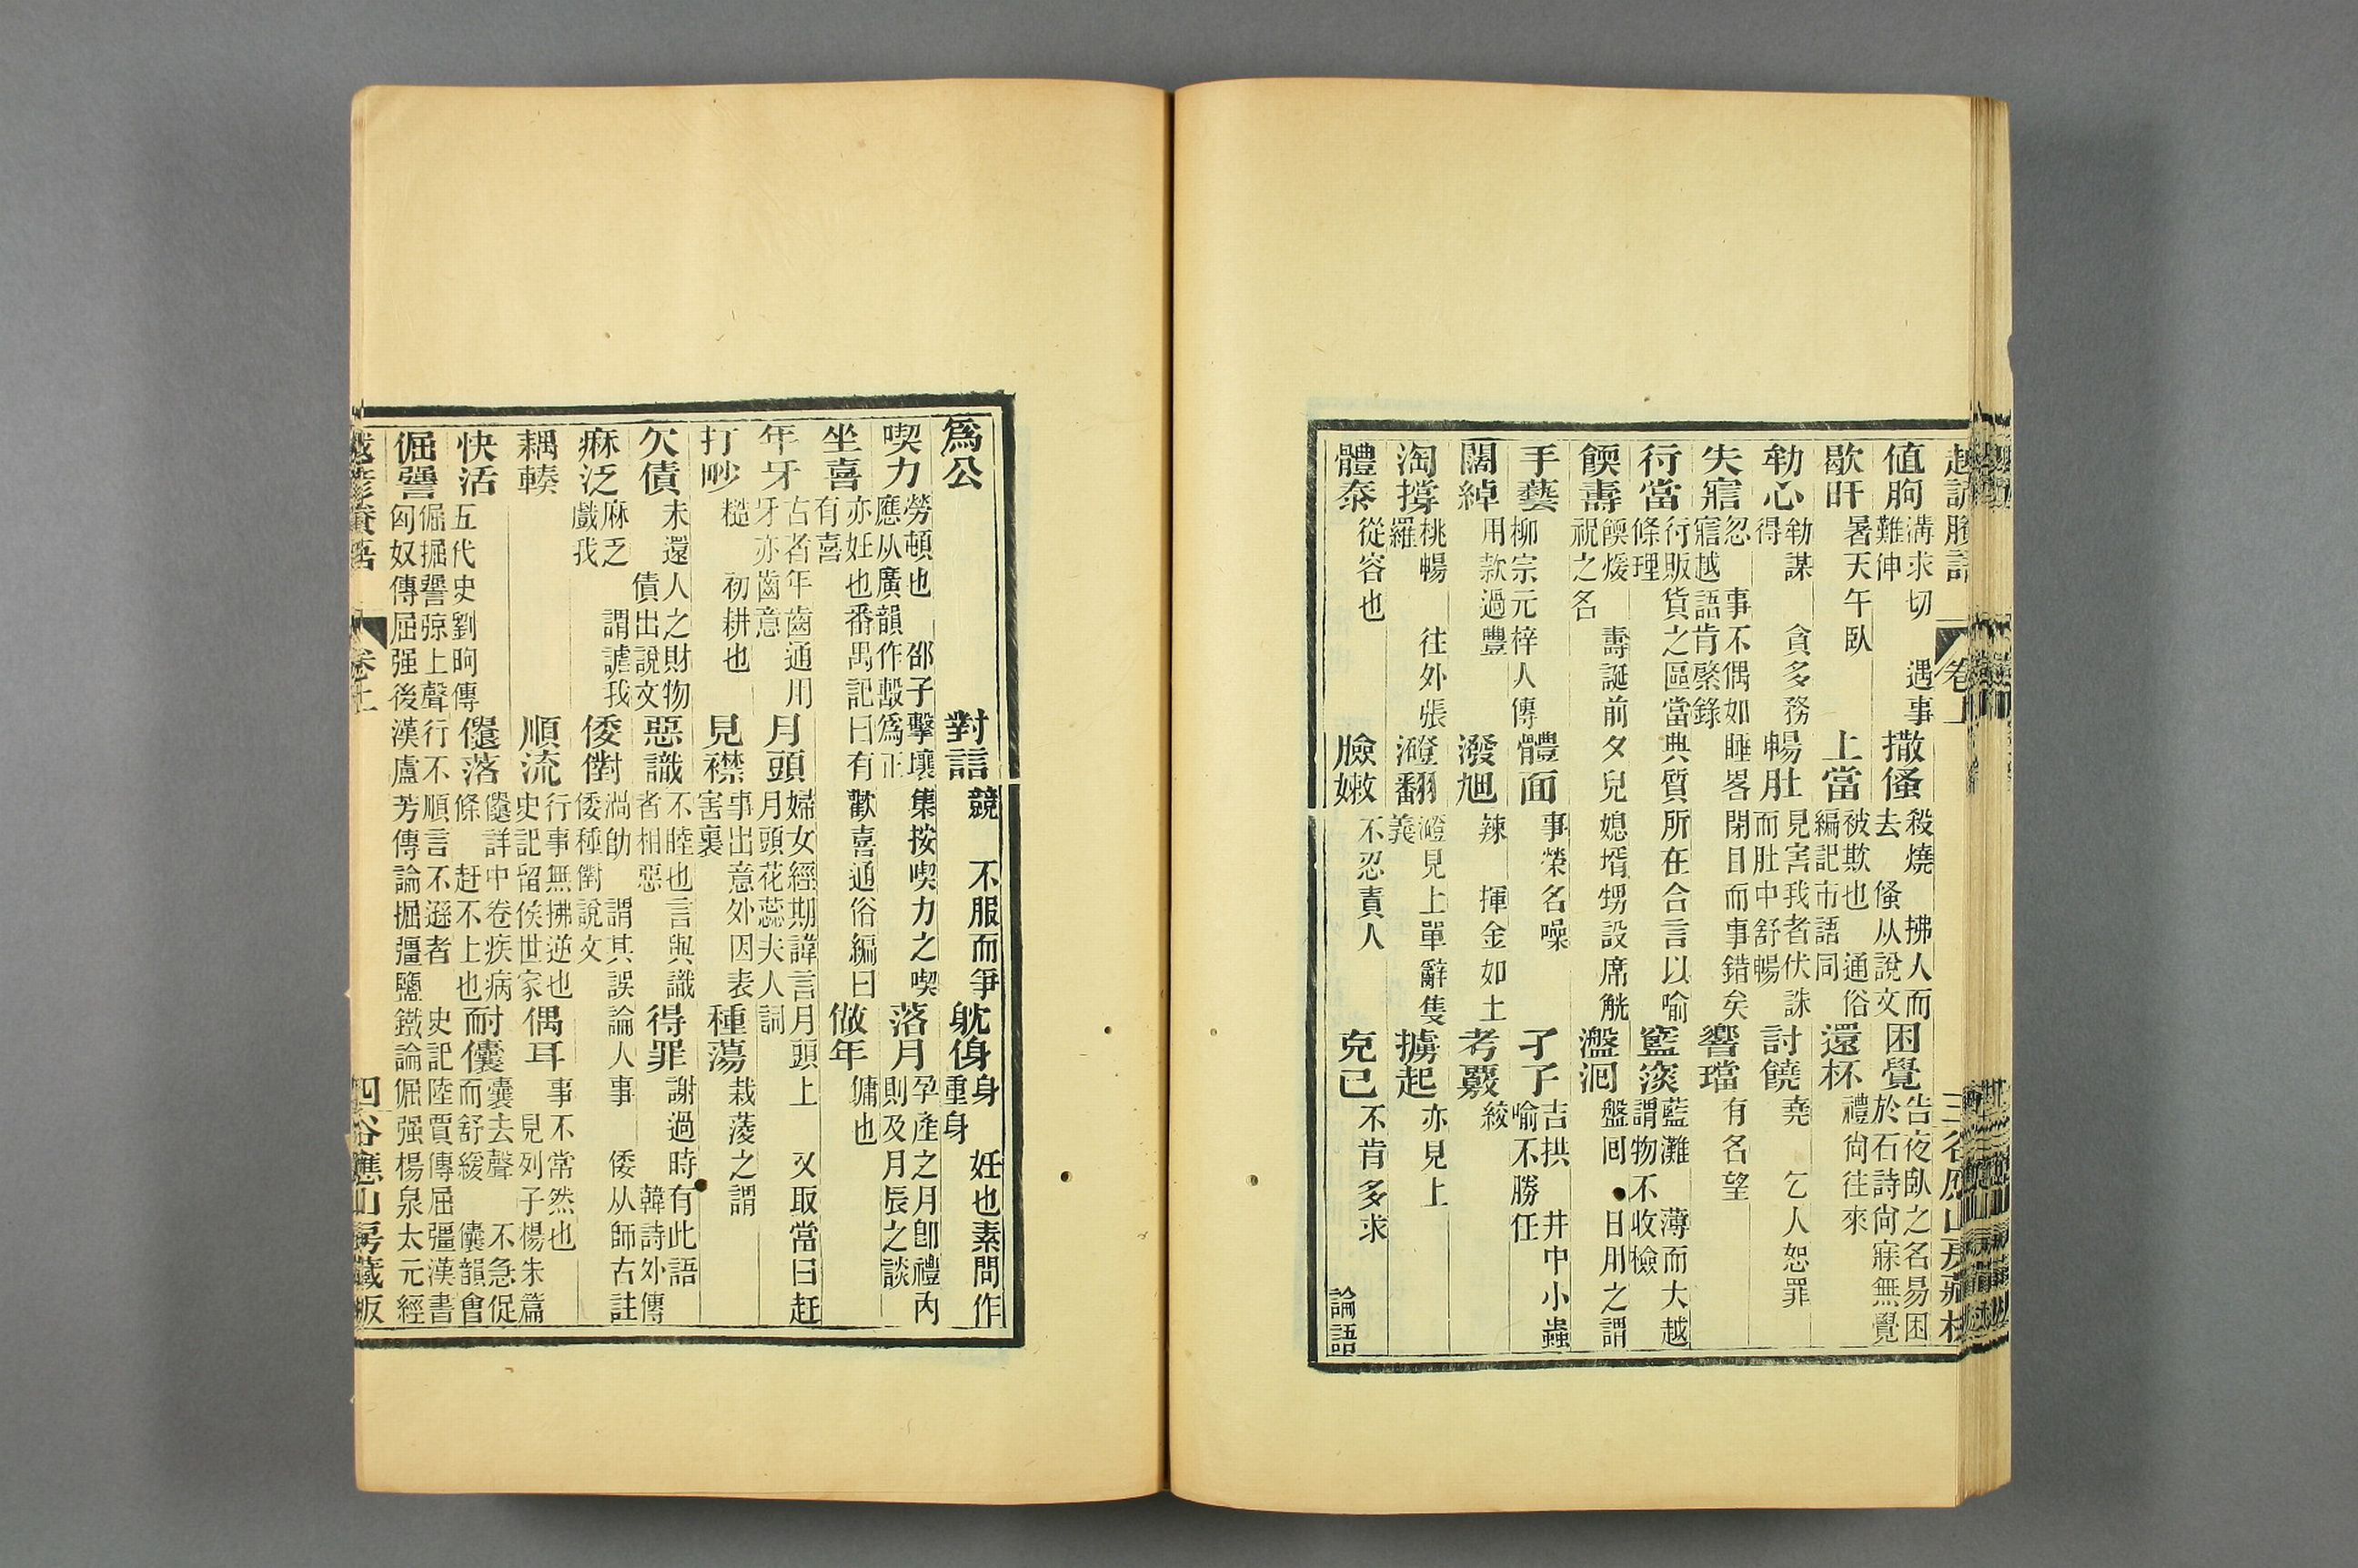 越諺賸語 卷上 三 谷應山房藏板
值朐 溝求切 遇事難伸 撒傜 殺燒 拂人而去 傜从說文 困覺 告夜臥之名易困於石詩尙寐無覺
歇旰 暑天午臥 上當 被欺也 通俗編記市語同 還杯 禮尙往來
勑心 勑謀 貪多務得 暢肚 見害我者伏誅而肚中舒暢 討饒 堯 乞人恕罪
失寤 忽 事不偶如睡畧閉目而事錯矣寤越語肯綮錄 響璫 有名望
行當 行販貨之區當典質所在合言以喻條理 籃滾 藍灘 薄而大越謂物不收檢
餪壽 餪煖 壽誕前夕兒媳壻甥設席觥祝之名 盤洄 盤囘 日用之謂
手藝 柳宗元梓人傳 體面 事榮名噪 孑孓 吉拱 井中小蟲喻不勝任
闊綽 用款過豐 潑 辣 揮金如土 考覈 絞
淘撐 桃暢 往外張羅 翻 見上單辭隻義 擄起 亦見上
體泰 從容也 臉嫩 不忍責人 克己 不肯多求 論語
爲公 對詰 競 不服而爭 躭身 身 妊也素問作重身
喫力 勞頓也 邵子擊壤集按喫力之喫應从廣韻作㱾爲正 落月 孕產之月卽禮內則及月辰之談
坐喜 亦妊也番禺記曰有歡喜通俗編曰有喜 做年 傭也
年牙 古者年齒通用牙亦齒意 月頭 婦女經期諱言月頭上 又取當日赶月頭花蕊夫人詞
打吵 糙 初耕也 見襟 事出意外因表害裏 種蕩 栽菱之謂
欠債 未還人之財物債出說文 惡識 不睦也言與識者相惡 得罪 謝過時有此語 韓詩外傳
痳泛 麻乏 謂謔我戲我 倭儝 謂其誤論人事 倭从師古註倭種儝說文
耦輳 順流 行事無拂逆也史記留侯世家 偶耳 事不常然也 見列子楊朱篇
快活 五代史劉昫傳 儱落 儱詳中卷疾病條 赶不上也 耐儾 囊去聲 不急促而舒緩 儾韻會
倔讆 倔掘讆弶上聲行不順言不遜者 史記陸賈傳屈彊漢書匈奴傳屈强後漢盧芳傳論掘彊鹽鐵論倔强楊泉太元經
越諺賸語 卷上 四 谷應山房藏板